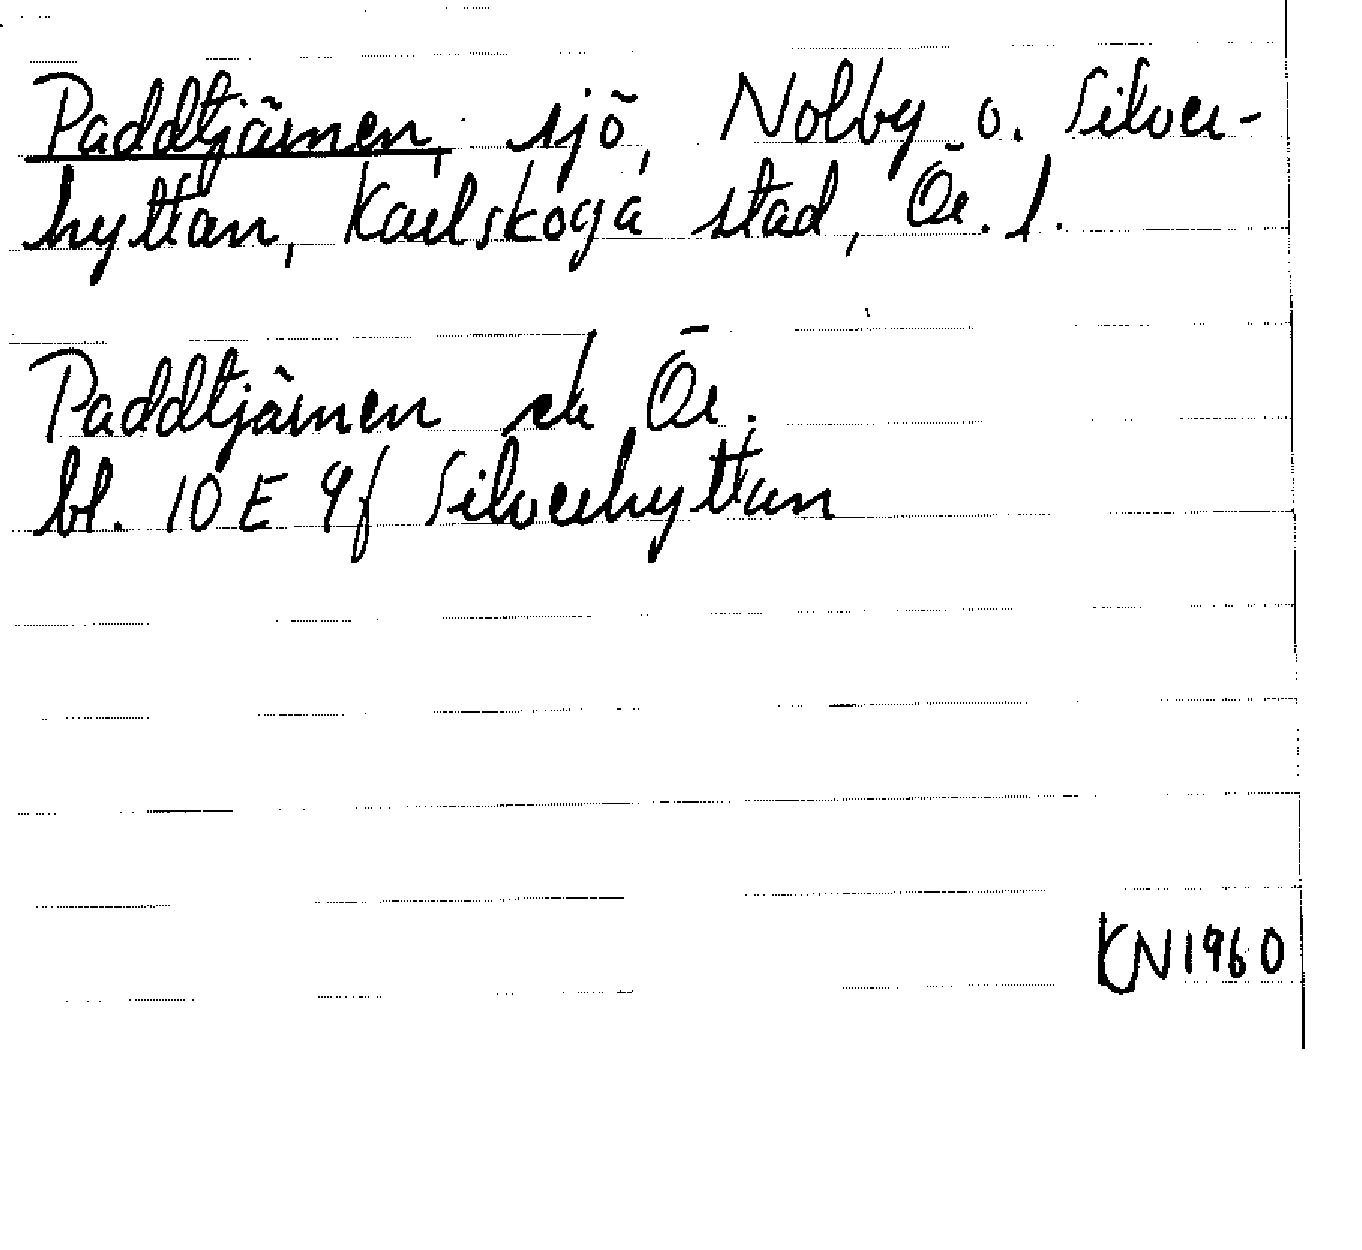 Paddtjärnen, sjö, Nolby o. Silver-
hyttan, Karlskoga stad, Ör. l.
Paddtjärnen ek Ör.
bl. 10 E 9f Silverhyttan
KN 1960